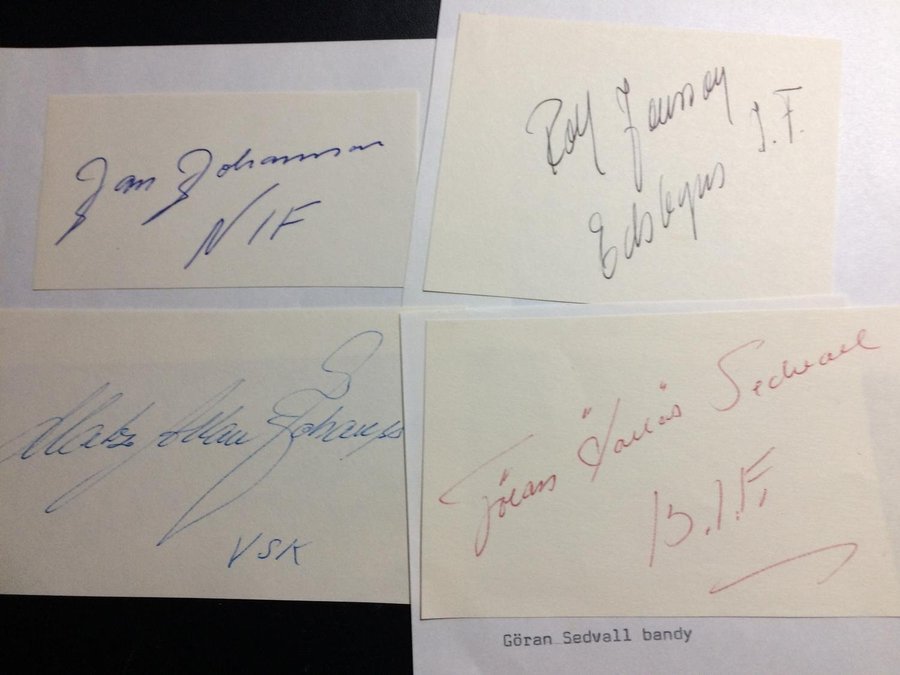 Jan Johansson
NIF
Rolf Jansson
Edsbyns I.F.
Johansson
VSK
Göran Sedvall
B.I.F.
Göran Sedvall bandy